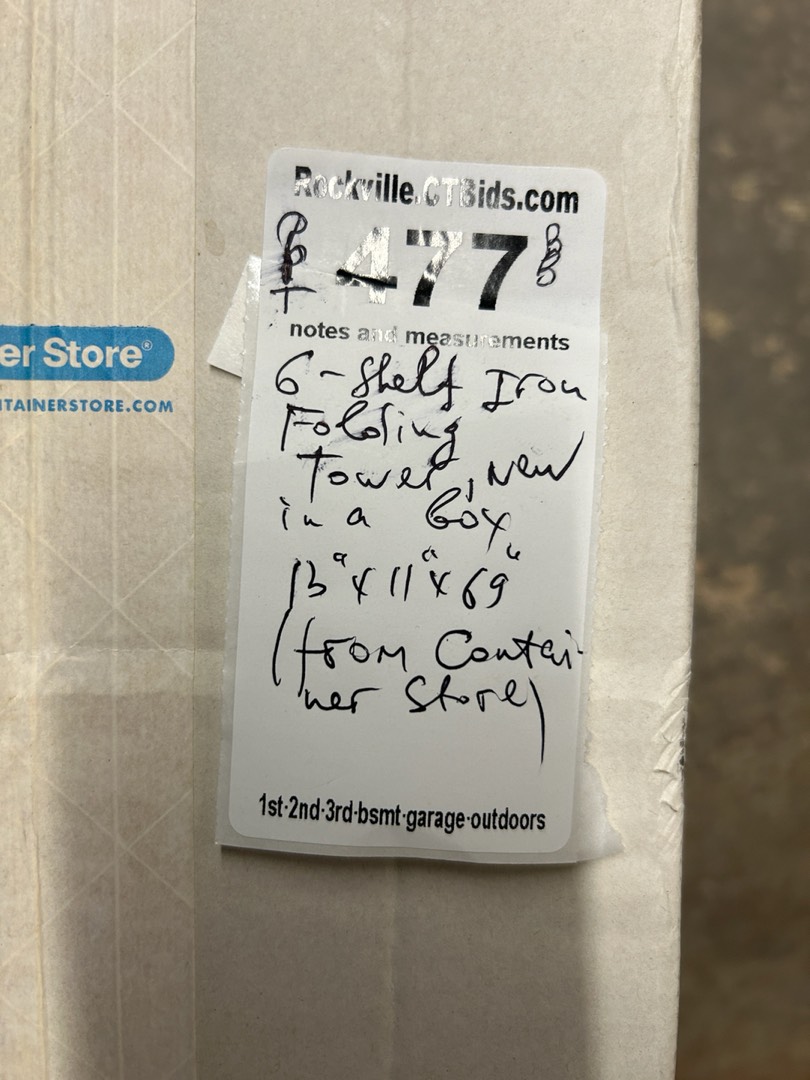 Rockville.CTBids.com
477
notes and measurements
6-Shelf Iron
Folding
Tower, New
in a box
13"x11"x69"
(from Contai-
ner Store)
1st·2nd·3rd·bsmt·garage·outdoors
er Store®
TAINERSTORE.COM